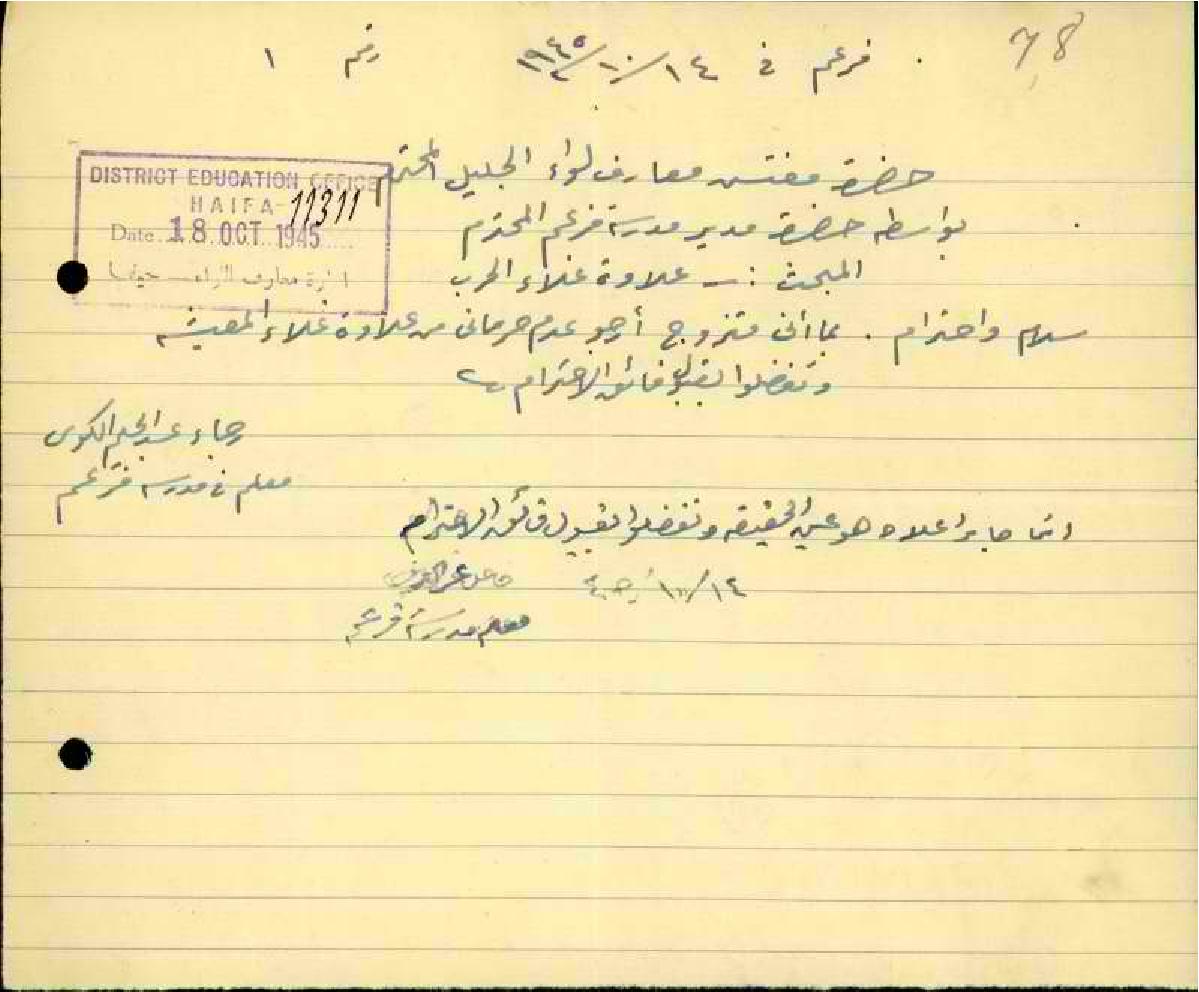 78
فرعم في ١٤/١٠/١٩٤٥ رقم ١
حضرة مفتش معارف لواء الجليل المحترم
DISTRICT EDUCATION OFFICE
HAIFA
11311
Date 18 OCT 1945
ادارة معارف اللواء حيفا
بواسطة حضرة مدير مدرسة فرعم المحترم
المبحث :- علاوة غلاء الحرب
سلام واحترام . بما أني متزوج أرجو عدم حرماني من علاوة غلاء المعيشه
وتفضلوا بقبول فائق الاحترام
رجاء عبد الحليم
معلم في مدرسة فرعم
انما جاء اعلاه هو عين الحقيقه وتفضلوا بقبول فائق الاحترام
١٤/١٠
معلم مدرسة فرعم